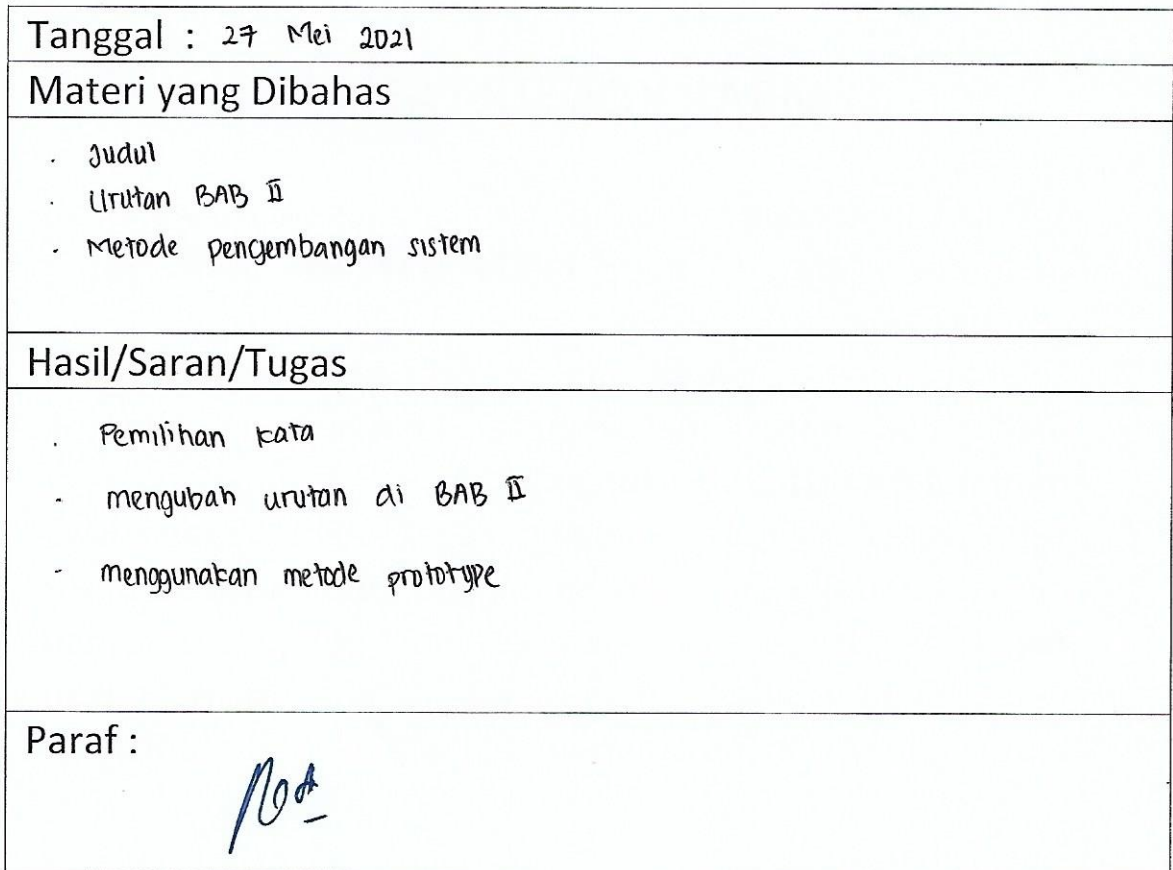 Tanggal : 27 Mei 2021
Materi yang Dibahas
. Judul
. Urutan BAB II
. Metode pengembangan sistem
Hasil/Saran/Tugas
. Pemilihan kata
- mengubah urutan di BAB II
- menggunakan metode prototype
Paraf :